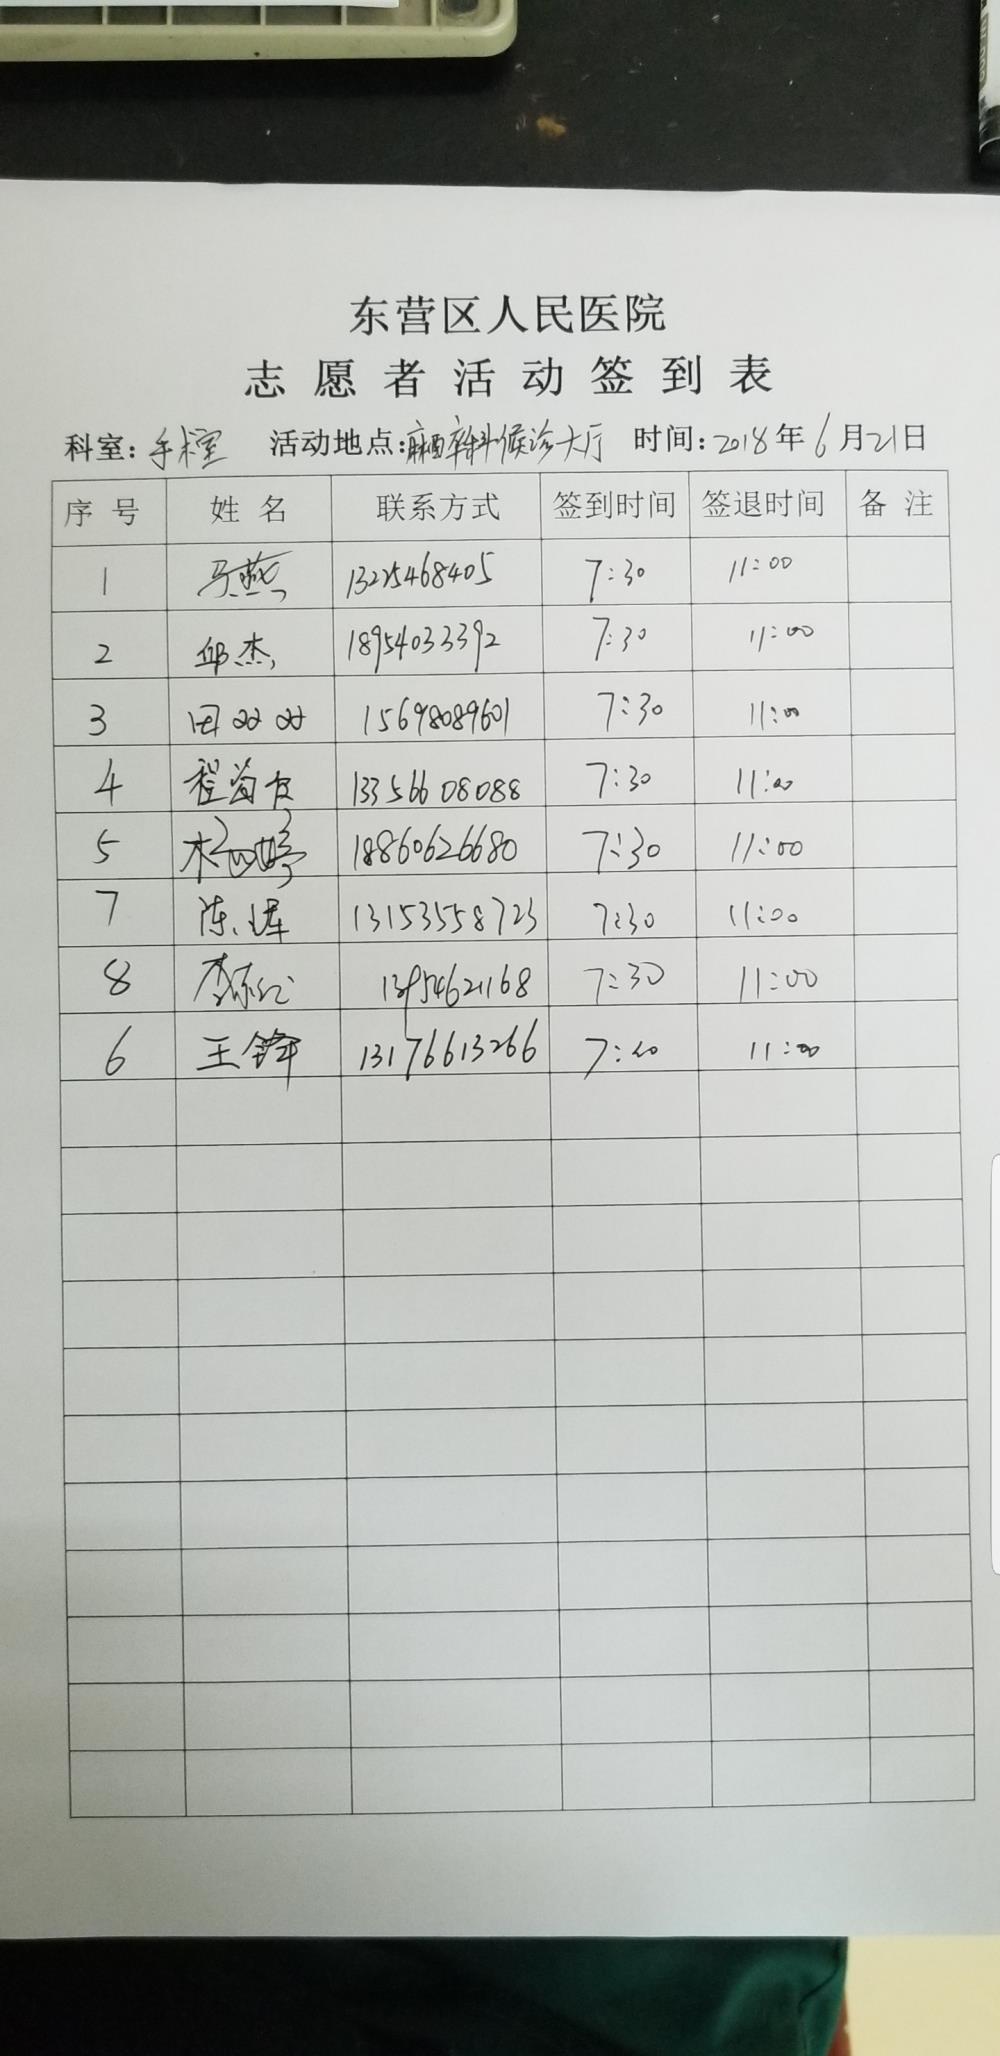 东营区人民医院
志愿者活动签到表
科室:手术室 活动地点:麻醉科候诊大厅 时间:2018年6月21日
序号 姓名 联系方式 签到时间 签退时间 备注
1 马燕 13225468405 7:30 11:00
2 邱杰 18954033392 7:30 11:00
3 田双双 15698089601 7:30 11:00
4 程 13356608088 7:30 11:00
5 杨婷 18860626680 7:30 11:00
7 陈 13153558723 7:30 11:00
8 李 13954621168 7:30 11:00
6 王锋 13176613266 7:20 11:00